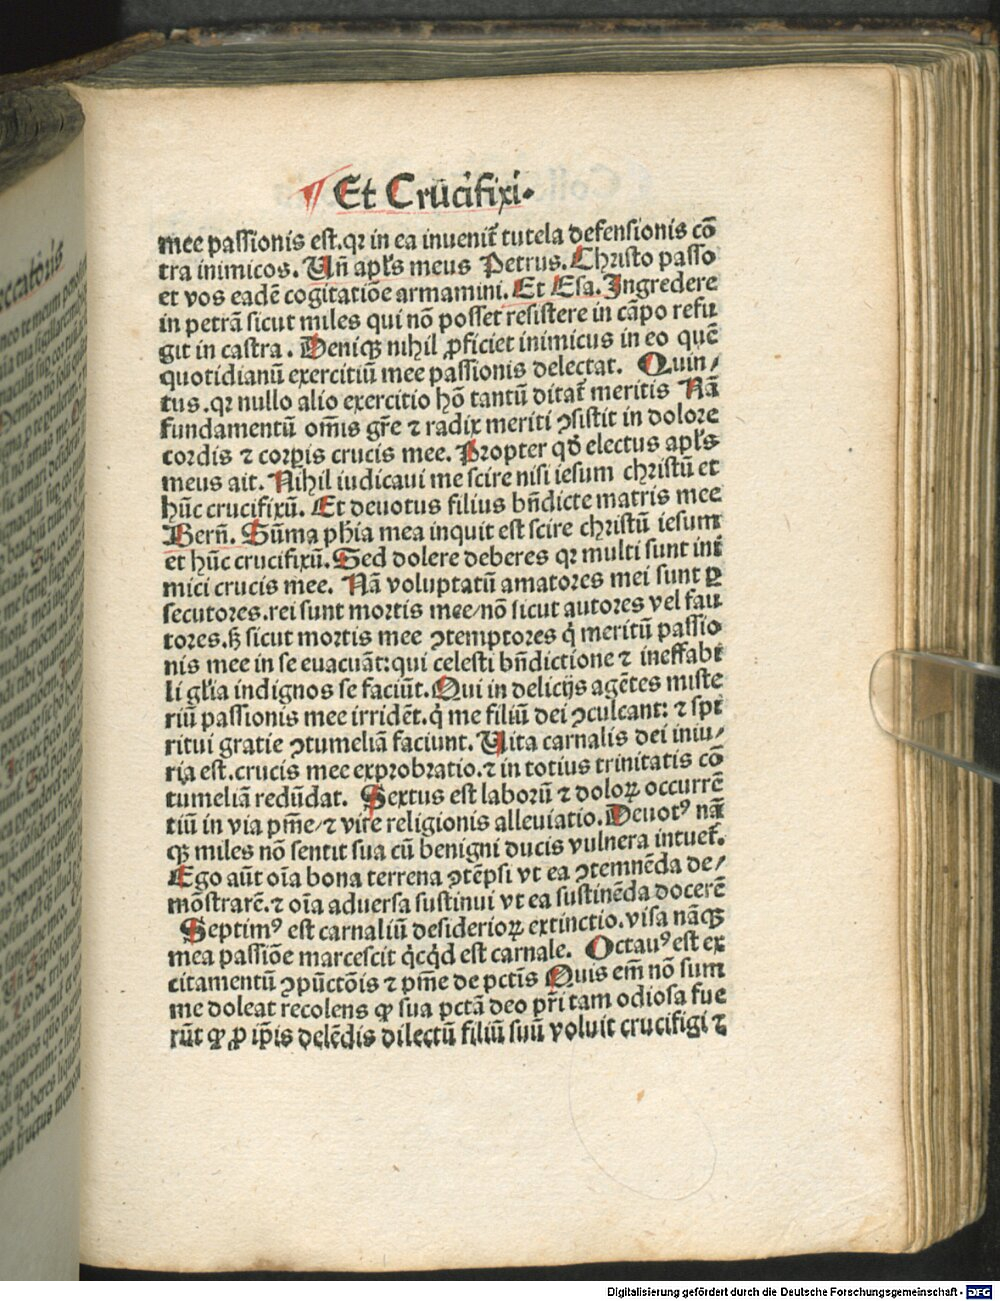 ¶ Et Crucifixi.
mee passionis est. qꝛ in ea inuenit᷑ tutela defensionis cō
tra inimicos. Vn̄ apl̄s meus Petrus. Christo passo
et vos eadē cogitatiōe armamini. Et Esa. Ingredere
in petrā sicut miles qui nō posset resistere in cāpo refu
git in castra. Deniqꝫ nihil ꝓficiet inimicus in eo quē
quotidianū exercitiū mee passionis delectat. Quin/
tus. qꝛ nullo alio exercitio hō tantū ditat᷑ meritis Nā
fundamentū om̄is gr̄e ⁊ radix meriti ꝯsistit in dolore
cordis ⁊ corꝑis crucis mee. Propter qd̄ electus apl̄s
meus ait. Nihil iudicaui me scire nisi iesum christū et
hūc crucifixū. Et deuotus filius bn̄dicte matris mee
Bern̄. Sūma ph̄ia mea inquit est scire christū iesum
et hūc crucifixū. Sed dolere deberes qꝛ multi sunt ini
mici crucis mee. Nā voluptatū amatores mei sunt ꝑ
secutores. rei sunt mortis mee/nō sicut autores vel fau
tores. sꝫ sicut mortis mee ꝯtemptores q̇ meritū passio
nis mee in se euacuāt: qui celesti bn̄dictione ⁊ ineffabi
li gl̄ia indignos se faciūt. Qui in delicijs agētes miste
riū passionis mee irridēt. q̇ me filiū dei ꝯculcant: ⁊ spi
ritui gratie ꝯtumeliā faciunt. Vita carnalis dei iniu/
ria est. crucis mee exprobratio. ⁊ in totius trinitatis cō
tumeliā redūdat. Sextus est laborū ⁊ doloꝝ occurrē
tiū in via pn̄ie/⁊ vite religionis alleuiatio. Deuotꝰ nā
qꝫ miles nō sentit sua cū benigni ducis vulnera intuet᷑.
Ego aūt oīa bona terrena ꝯtēpsi vt ea ꝯtemnēda de/
mōstrarē. ⁊ oīa aduersa sustinui vt ea sustinēda docerē
Septimꝰ est carnaliū desiderioꝝ extinctio. visa nāqꝫ
mea passiōe marcescit q̇cq̇d est carnale. Octauꝰ est ex
citamentū ꝯpūctōis ⁊ pn̄ie de pctīs Quis em̄ nō sum
me doleat recolens ꝙ sua pctā deo pr̄i tam odiosa fue
rūt ꝙ ꝓ ip̄is delēdis dilectū filiū suū voluit crucifigi ⁊
Digitalisierung gefördert durch die Deutsche Forschungsgemeinschaft - DFG